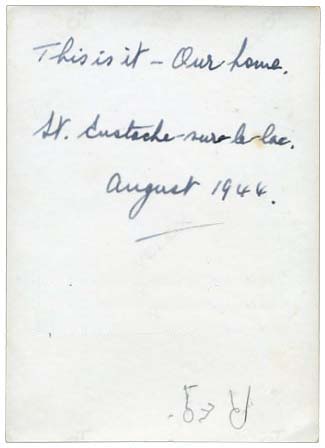 This is it – Our home.
St. Eustache-sur-le-lac.
August 1944.